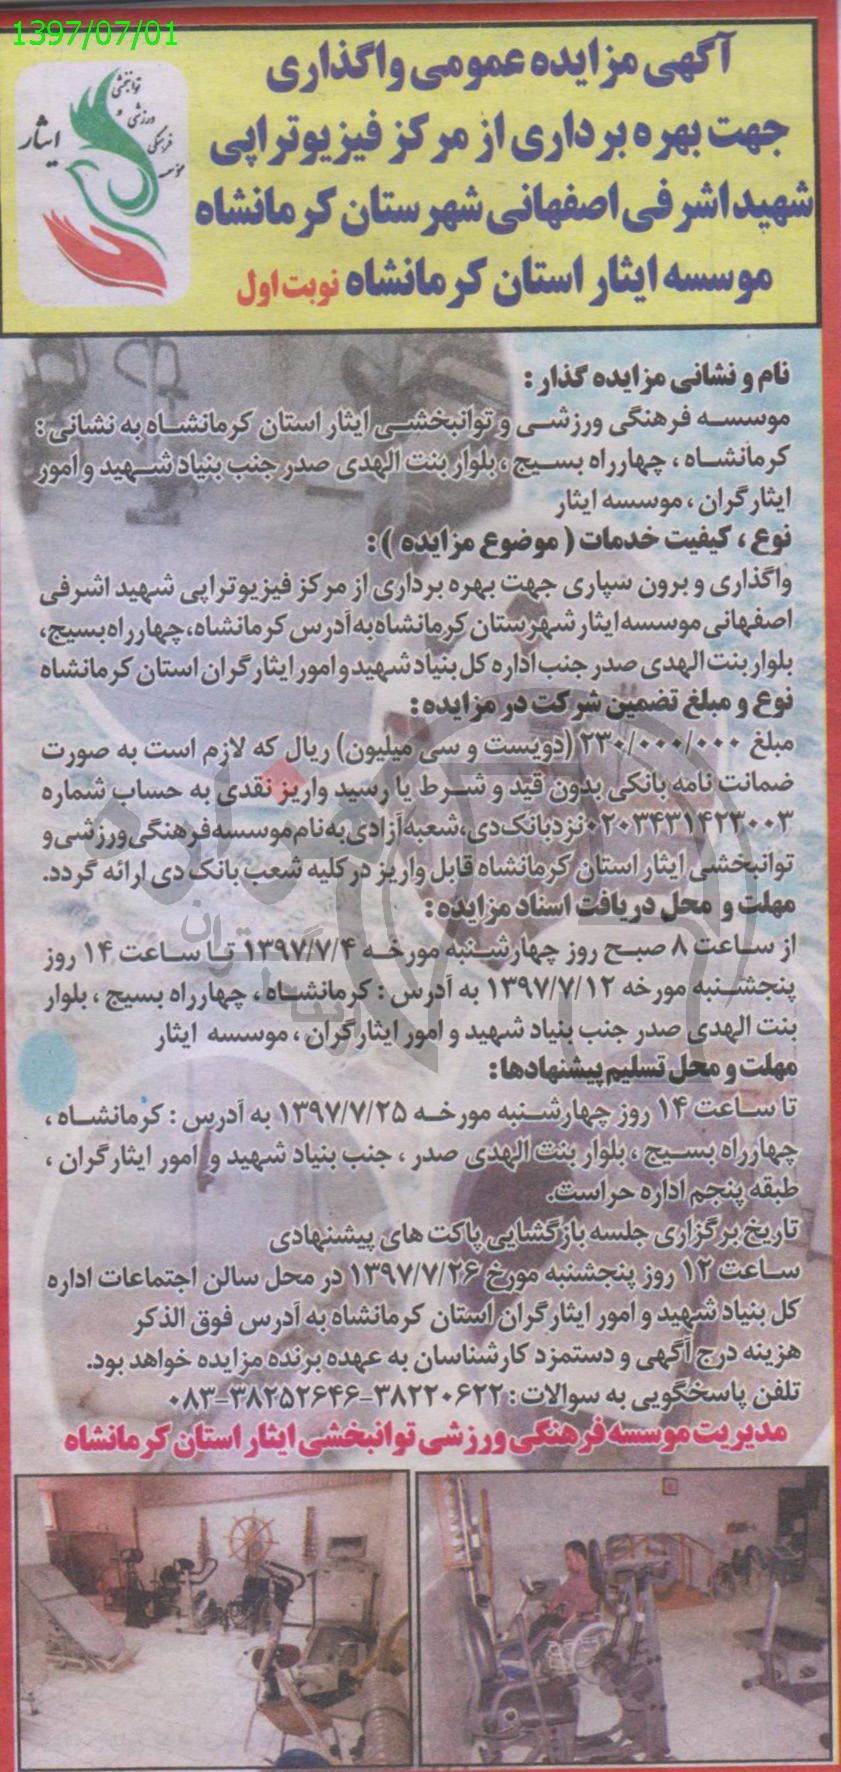 1397/07/01
آگهی مزایده عمومی واگذاری
جهت بهره برداری از مرکز فیزیوتراپی
شهید اشرفی اصفهانی شهرستان کرمانشاه
موسسه ایثار استان کرمانشاه نوبت اول
توانبخشی
ورزشی و
فرهنگی
موسسه
ایثار
نام و نشانی مزایده گذار :
موسسه فرهنگی ورزشی و توانبخشی ایثار استان کرمانشاه به نشانی :
کرمانشاه ، چهارراه بسیج ، بلوار بنت الهدی صدر جنب بنیاد شهید و امور
ایثارگران ، موسسه ایثار
نوع ، کیفیت خدمات ( موضوع مزایده ) :
واگذاری و برون سپاری جهت بهره برداری از مرکز فیزیوتراپی شهید اشرفی
اصفهانی موسسه ایثار شهرستان کرمانشاه به آدرس کرمانشاه، چهارراه بسیج،
بلوار بنت الهدی صدر جنب اداره کل بنیاد شهید و امور ایثارگران استان کرمانشاه
نوع و مبلغ تضمین شرکت در مزایده :
مبلغ ۲۳۰/۰۰۰/۰۰۰ (دویست و سی میلیون) ریال که لازم است به صورت
ضمانت نامه بانکی بدون قید و شرط یا رسید واریز نقدی به حساب شماره
۰۲۰۳۴۳۱۴۲۳۰۰۳ نزد بانک دی، شعبه آزادی به نام موسسه فرهنگی ورزشی و
توانبخشی ایثار استان کرمانشاه قابل واریز در کلیه شعب بانک دی ارائه گردد.
مهلت و محل دریافت اسناد مزایده :
از ساعت ۸ صبح روز چهارشنبه مورخه ۱۳۹۷/۷/۴ تا ساعت ۱۴ روز
پنجشنبه مورخه ۱۳۹۷/۷/۱۲ به آدرس : کرمانشاه ، چهارراه بسیج ، بلوار
بنت الهدی صدر جنب بنیاد شهید و امور ایثارگران ، موسسه ایثار
مهلت و محل تسلیم پیشنهادها :
تا ساعت ۱۴ روز چهارشنبه مورخه ۱۳۹۷/۷/۲۵ به آدرس : کرمانشاه ،
چهارراه بسیج ، بلوار بنت الهدی صدر ، جنب بنیاد شهید و امور ایثارگران ،
طبقه پنجم اداره حراست.
تاریخ برگزاری جلسه بازگشایی پاکت های پیشنهادی
ساعت ۱۲ روز پنجشنبه مورخ ۱۳۹۷/۷/۲۶ در محل سالن اجتماعات اداره
کل بنیاد شهید و امور ایثارگران استان کرمانشاه به آدرس فوق الذکر
هزینه درج آگهی و دستمزد کارشناسان به عهده برنده مزایده خواهد بود.
تلفن پاسخگویی به سوالات : ۳۸۲۲۰۶۲۲-۳۸۲۵۲۶۴۶-۰۸۳
مدیریت موسسه فرهنگی ورزشی توانبخشی ایثار استان کرمانشاه